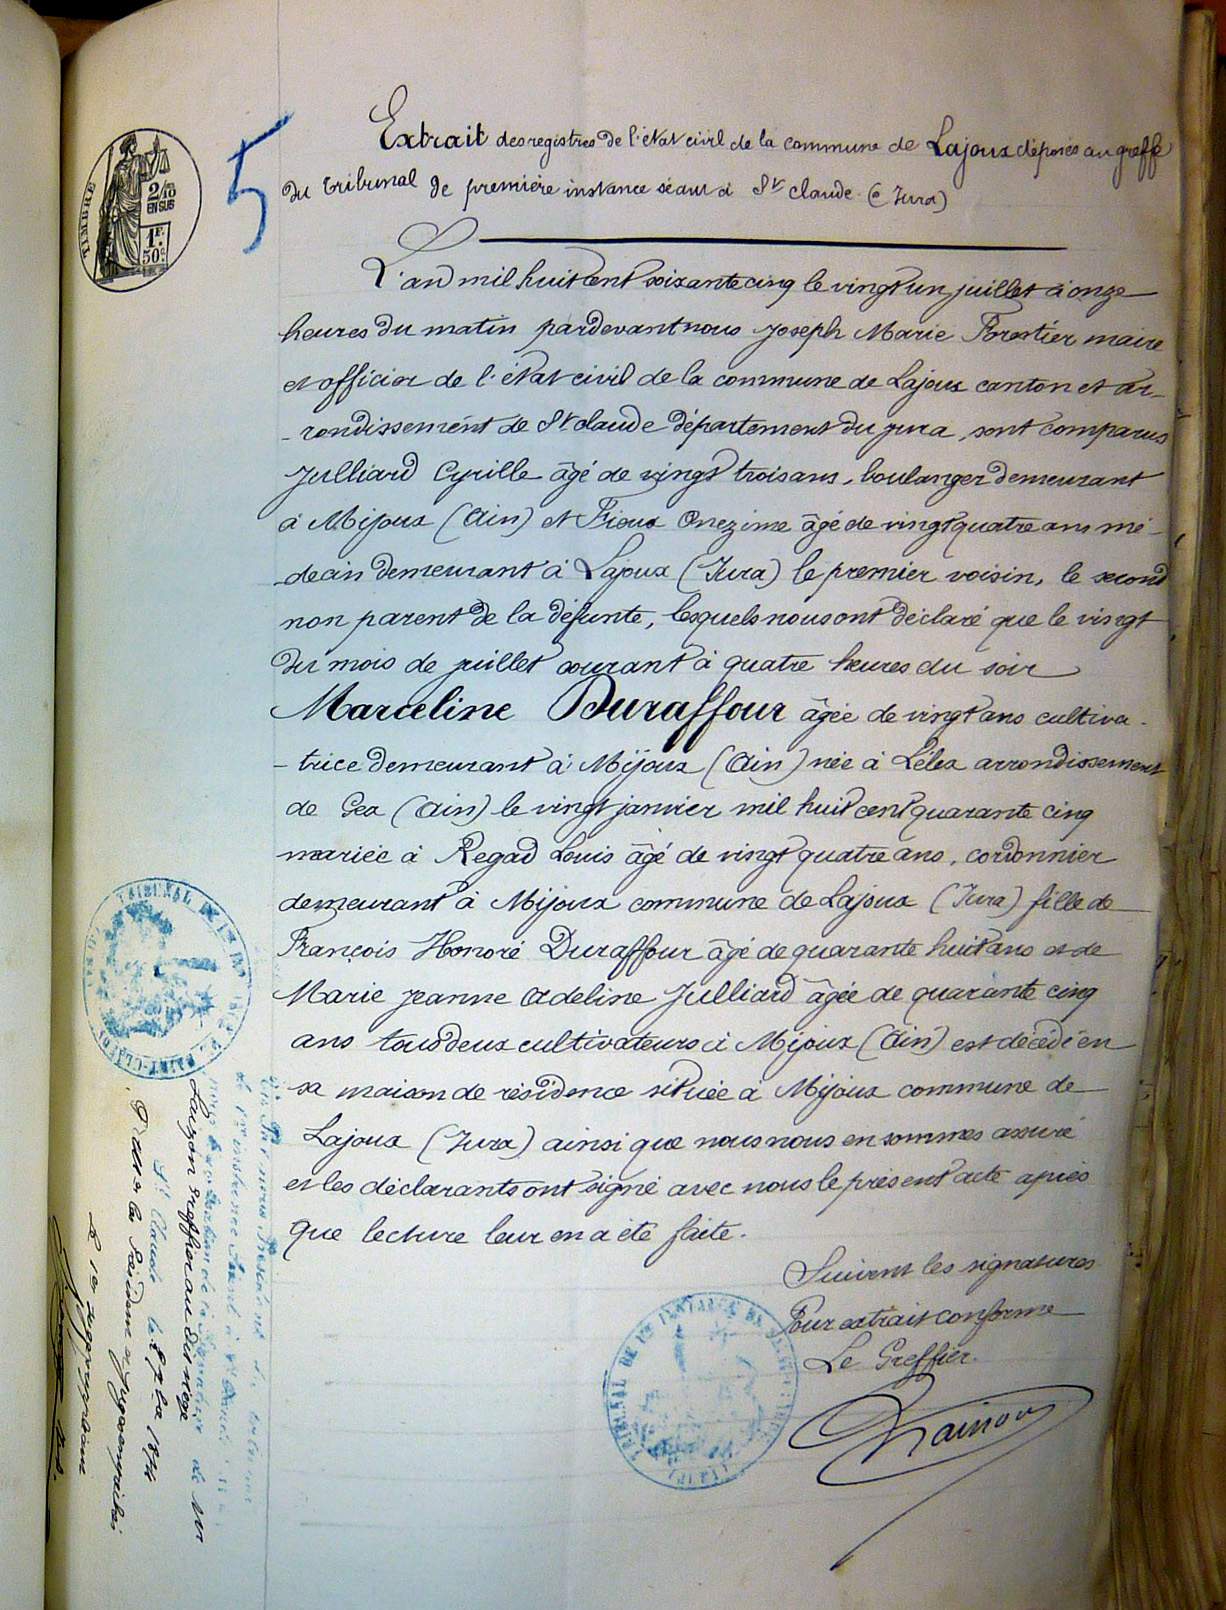 TIMBRE
2/10
EN SUS
1F.
50c
5
Extrait des registres de l'état civil de la commune de Lajoux déposés au greffe
du tribunal de première instance séant à St claude (Jura)
L'an mil huit cent soixante cinq le vingt un juillet à onze
heures du matin pardevant nous Joseph Marie Forestier maire
et officier de l'état civil de la commune de Lajoux canton et ar-
-rondissement de St claude département du jura sont comparus
Julliard Cyrille âgé de vingt trois ans, boulanger demeurant
à Mijoux (Ain) et Frioux Onezime âgé de vingt quatre ans mé-
-decin demeurant à Lajoux (Jura) le premier voisin, le second
non parent de la défunte, lesquels nous ont déclaré que le vingt
du mois de juillet courant à quatre heures du soir
Marceline Duraffour âgée de vingt ans cultiva-
-trice demeurant à Mijoux (Ain) née à Lélex arrondissement
de Gex (Ain) le vingt janvier mil huit cent quarante cinq
mariée à Regad Louis âgé de vingt quatre ans, cordonnier
demeurant à Mijoux commune de Lajoux (Jura) fille de
François Honoré Duraffour âgé de quarante huit ans et de
Marie jeanne Adeline Julliard âgée de quarante cinq
ans tous deux cultivateurs à Mijoux (Ain) est décédé en
sa maison de résidence située à Mijoux commune de
Lajoux (Jura) ainsi que nous nous en sommes assuré
et les déclarants ont signé avec nous le présent acte après
que lecture leur en a été faite.
Suivent les signatures
Pour extrait conforme
Le Greffier
TRIBUNAL DE 1re INSTANCE DE St CLAUDE
(JURA)
TRIBUNAL DE 1re INST
ST-CLAUDE
greffier au dit siège
St Claude le 1874